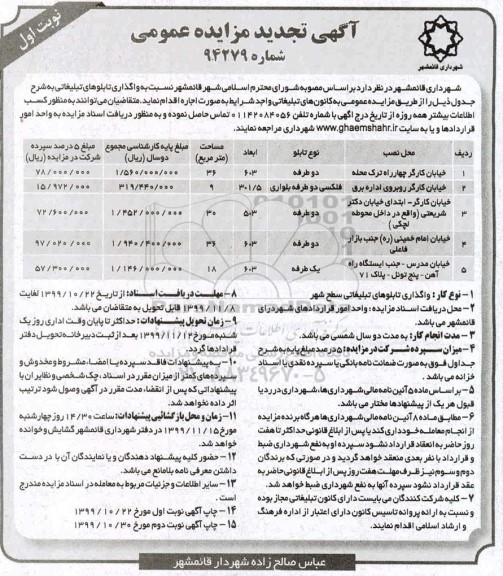 نوبت اول
شهرداری قائمشهر
آگهی تجدید مزایده عمومی
شماره ۹۴۲۷۹
شهرداری قائمشهر در نظر دارد بر اساس مصوبه شورای محترم اسلامی شهر قائمشهر نسبت به واگذاری تابلوهای تبلیغاتی به شرح
جدول ذیل را از طریق مزایده عمومی به کانون‌های تبلیغاتی واجد شرایط به صورت اجاره اقدام نماید. متقاضیان می‌توانند به منظور کسب
اطلاعات بیشتر همه روزه از تاریخ درج آگهی با شماره تلفن ۰۱۱۴۲۰۸۴۰۵۶ تماس حاصل نموده و به منظور دریافت اسناد مزایده به واحد امور
قراردادها و یا به سایت www.ghaemshahr.ir شهرداری مراجعه نمایند.
ردیف | محل نصب | نوع تابلو | ابعاد | مساحت (متر مربع) | مبلغ پایه کارشناسی مجموع دوسال (ریال) | مبلغ ۵ درصد سپرده شرکت در مزایده (ریال)
۱ | خیابان کارگر چهارراه ترک محله | دو طرفه | ۶*۳ | ۳۶ | ۱/۵۶۰/۰۰۰/۰۰۰ | ۷۸/۰۰۰/۰۰۰
۲ | خیابان کارگر روبروی اداره برق | فلکسی دو طرفه بلواری | ۳*۱/۵ | ۹ | ۳۱۹/۴۴۰/۰۰۰ | ۱۵/۹۷۲/۰۰۰
۳ | خیابان کارگر- ابتدای خیابان دکتر شریعتی (واقع در داخل محوطه لچکی) | دو طرفه | ۵*۳ | ۳۰ | ۱/۴۵۲/۰۰۰/۰۰۰ | ۷۲/۶۰۰/۰۰۰
۴ | خیابان امام خمینی (ره) جنب بازار فاملی | دو طرفه | ۶*۳ | ۳۶ | ۱/۹۴۰/۴۰۰/۰۰۰ | ۹۷/۰۲۰/۰۰۰
۵ | خیابان مدرس - جنب ایستگاه راه آهن - پنج تونل - پلاک ۷۱ | یک طرفه | ۶*۳ | ۱۸ | ۱/۱۴۶/۰۰۰/۰۰۰ | ۵۷/۳۰۰/۰۰۰
۱- نوع کار: واگذاری تابلوهای تبلیغاتی سطح شهر
۲- محل دریافت اسناد مزایده: واحد امور قراردادهای شهرداری
قائمشهر می باشد.
۳- مدت انجام کار: به مدت دو سال شمسی می باشد.
۴- میزان سپرده شرکت در مزایده: ۵ درصد مبلغ پایه به شرح
جدول فوق به صورت ضمانت نامه بانکی یا سپرده نقدی یا اسناد
خزانه می باشد.
۵- بر اساس ماده ۵ آئین نامه مالی شهرداری‌ها، شهرداری در رد یا
قبول هر یک از پیشنهادها مختار می باشد.
۶- مطابق ماده ۸ آئین نامه مالی شهرداری ها هرگاه برنده مزایده
از انجام معامله خودداری کند یا پس از ابلاغ قانونی حداکثر تا هفت
روز حاضر به انعقاد قرارداد نشود سپرده او به نفع شهرداری ضبط
و قرارداد با نفر بعدی منعقد خواهد گردید و در صورتی که برندگان
دوم و سوم نیز ظرف مهلت هفت روز پس از ابلاغ قانونی حاضر به
عقد قرارداد نشود سپرده آنها به نفع شهرداری ضبط خواهد شد.
۷- کلیه شرکت کنندگان می بایست دارای کانون تبلیغاتی مجاز بوده
و نسبت به ارائه پروانه تاسیس کانون دارای اعتبار از اداره فرهنگ
و ارشاد اسلامی اقدام نمایند.
۸- مهلت دریافت اسناد: از تاریخ ۱۳۹۹/۱۰/۲۲ لغایت
۱۳۹۹/۱۱/۸ قابل تحویل به متقاضیان می باشد.
۹- زمان تحویل پیشنهادات: حداکثر تا پایان وقت اداری روز یک
شنبه مورخ ۱۳۹۹/۱۱/۱۲ بعد از ثبت دبیرخانه تحویل دفتر
قراردادها گردد.
۱۰- به پیشنهادات فاقد سپرده یا امضاء، مشروط و مخدوش و
سپرده‌های کمتر از میزان مقرر در اسناد، چک شخصی و نظایر آن یا
پیشنهاداتی که پس از انقضا، مدت مقرر در آگهی وصول شود ترتیب
اثر داده نخواهد شد.
۱۱- زمان و محل بازگشائی پیشنهادات: ساعت ۱۴/۳۰ روز چهارشنبه
مورخ ۱۳۹۹/۱۱/۱۵ در دفتر شهرداری قائمشهر گشایش و خوانده
خواهد شد.
۱۲- حضور کلیه پیشنهاد دهندگان و یا نمایندگان آن با در دست
داشتن معرفی نامه بلامانع می باشد.
۱۳- سایر اطلاعات و جزئیات مربوط به معامله در اسناد مزایده مندرج
است.
۱۴- چاپ آگهی نوبت اول مورخ ۱۳۹۹/۱۰/۲۲
۱۵- چاپ آگهی نوبت دوم مورخ ۱۳۹۹/۱۰/۳۰
عباس صالح زاده شهردار قائمشهر